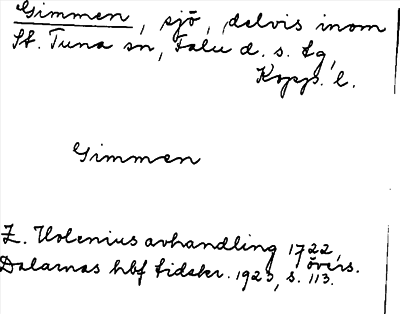 Gimmen, sjö, delvis inom
St. Tuna sn, Falu d. s. tg,
Kopp. l.
Gimmen
Z. Holenius avhandling 1722,
övers.
Dalarnas hbf tidskr. 1923, s. 113.